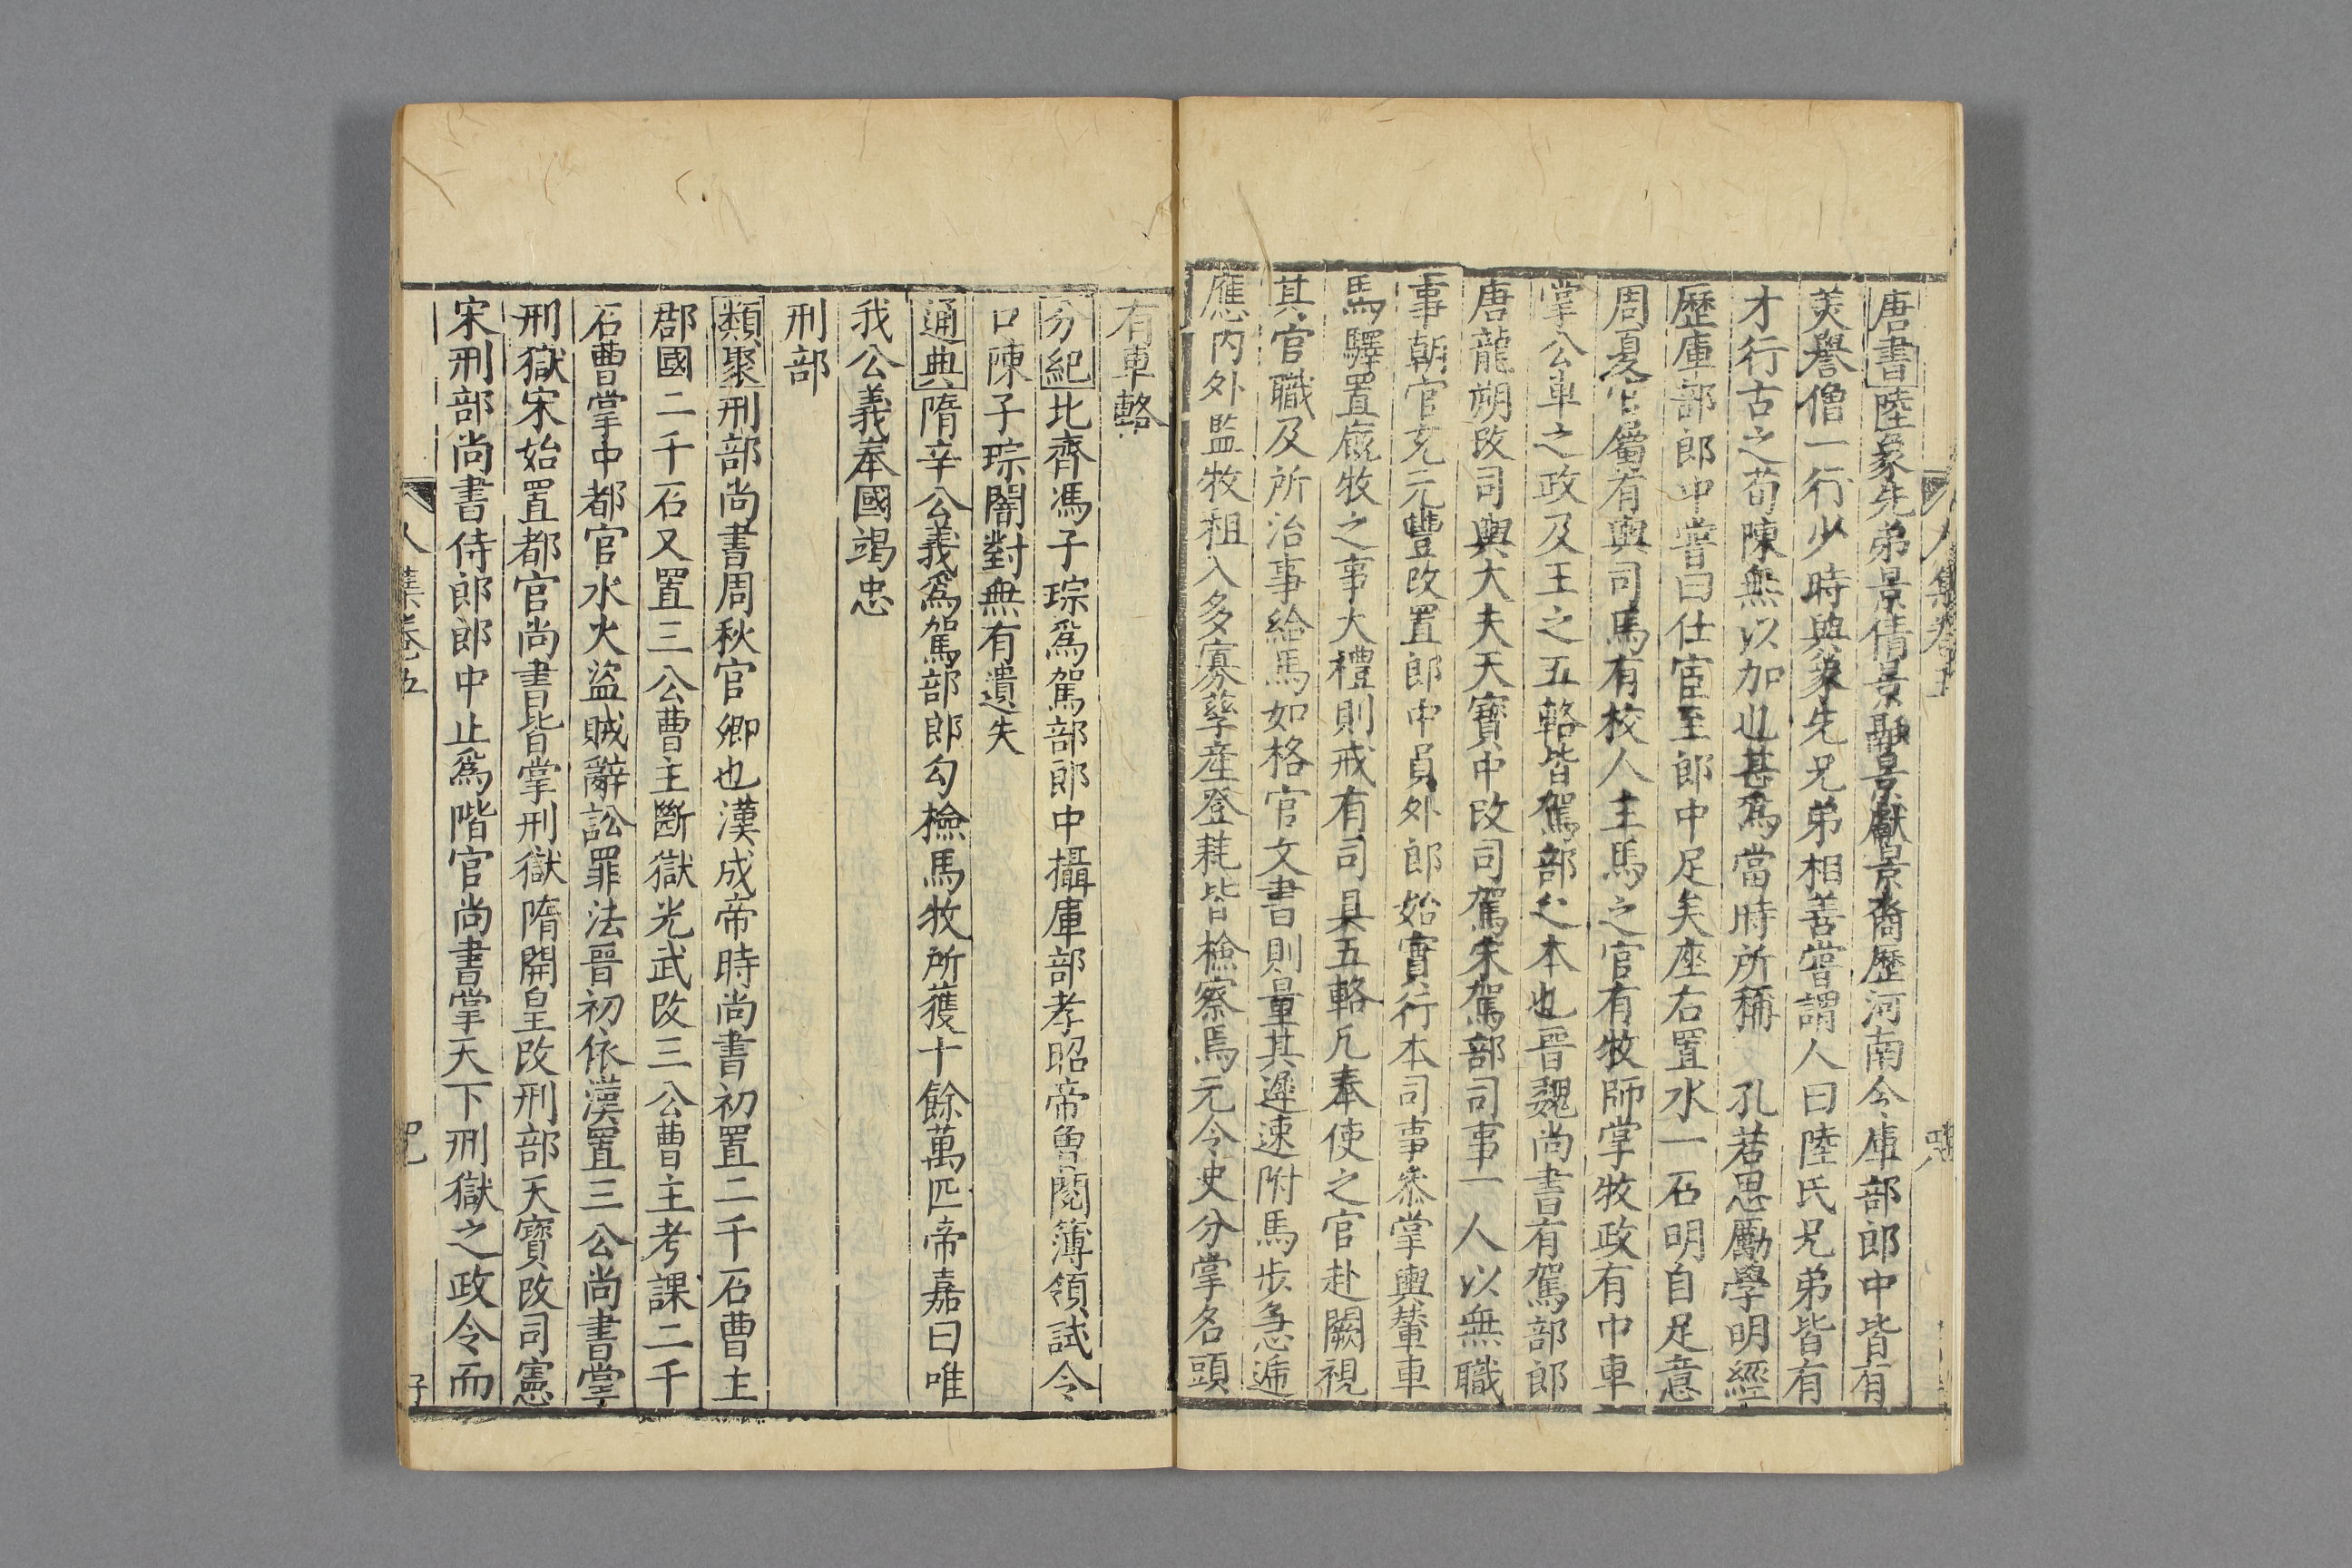 唐書陸象先弟景倩景融景獻景裔歷河南令庫部郎中皆有
美譽僧一行少時與象先兄弟相善嘗謂人曰陸氏兄弟皆有
才行古之荀陳無以加也甚爲當時所稱 孔若思勵學明經
歷庫部郎中嘗曰仕宦至郎中足矣座右置水一石明自足意
周夏官屬有輿司馬有校人主馬之官有牧師掌牧政有巾車
掌公車之政及王之五輅皆駕部之本也晉魏尚書有駕部郎
唐龍朔改司輿大夫天寶中改司駕宋駕部司事一人以無職
事朝官充元豐改置郎中員外郎始實行本司事叅掌輿輦車
馬驛置廄牧之事大禮則戒有司具五輅凡奉使之官赴闕視
其官職及所治事給馬如格官文書則量其遲速附馬步急遞
應内外監牧租入多寡孳産登耗皆檢察焉元令史分掌名頭
有車輅
分紀北齊馮子琮爲駕部郎中攝庫部孝昭帝曾閱簿領試令
口陳子琮闇對無有遺失
通典隋辛公義爲駕部郎勾檢馬牧所獲十餘萬匹帝嘉曰唯
我公義奉國竭忠
刑部
類聚刑部尚書周秋官卿也漢成帝時尚書初置二千石曹主
郡國二千石又置三公曹主斷獄光武改三公曹主考課二千
石曹掌中都官水火盜賊辭訟罪法晉初依漢置三公尚書掌
刑獄宋始置都官尚書皆掌刑獄隋開皇改刑部天寶改司憲
宋刑部尚書侍郎郎中止爲階官尚書掌天下刑獄之政令而